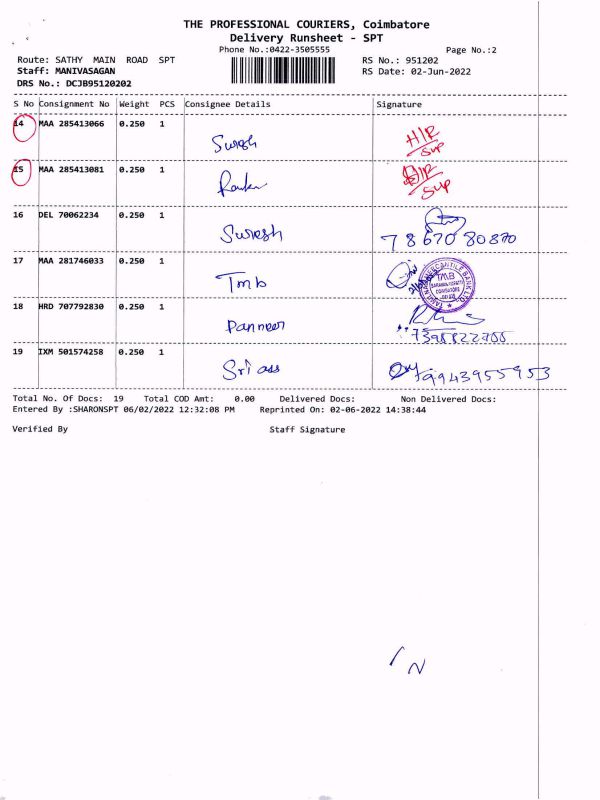 THE PROFESSIONAL COURIERS, Coimbatore
Delivery Runsheet - SPT
Phone No.:0422-3505555
Page No.:2
Route: SATHY MAIN ROAD SPT
RS No.: 951202
Staff: MANIVASAGAN
RS Date: 02-Jun-2022
DRS No.: DCJB95120202
S No Consignment No Weight PCS Consignee Details Signature
14 MAA 285413066 0.250 1 Suresh H/R Sup
15 MAA 285413081 0.250 1 H/R Sup
16 DEL 70062234 0.250 1 Suresh 78670 80870
17 MAA 281746033 0.250 1 Tmb
TAMILNAD MERCANTILE BANK LTD. TMB COIMBATORE
18 HRD 707792830 0.250 1 Panneer
19 IXM 501574258 0.250 1 Sri ass 9943955953
Total No. Of Docs: 19 Total COD Amt: 0.00 Delivered Docs: Non Delivered Docs:
Entered By :SHARONSPT 06/02/2022 12:32:08 PM Reprinted On: 02-06-2022 14:38:44
Verified By Staff Signature